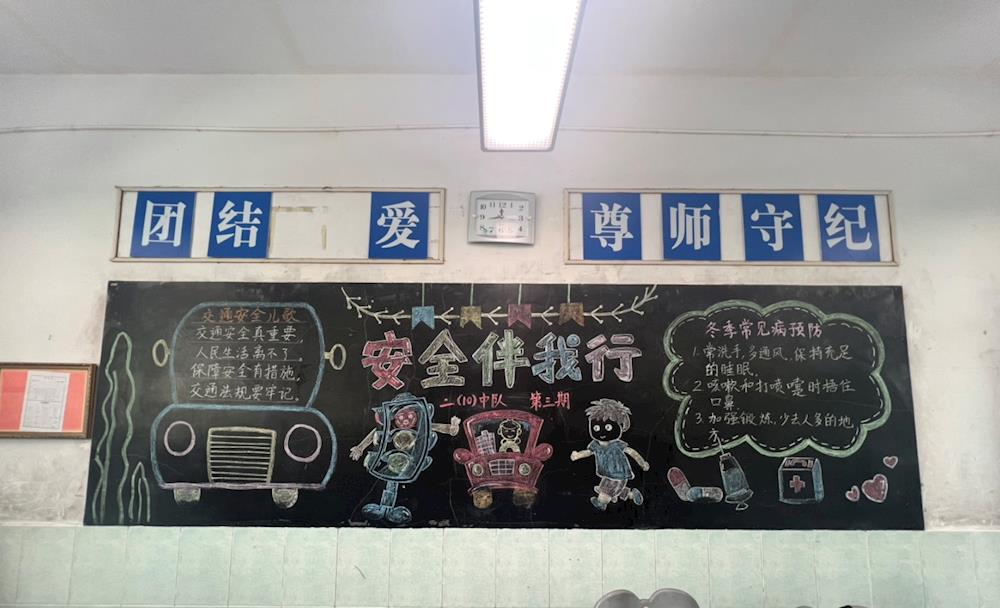 团结 爱
尊师守纪
交通安全儿歌
交通安全真重要，
人民生活离不了，
保障安全有措施，
交通法规要牢记。
安全伴我行
二(10)中队 第三期
冬季常见病预防
1.常洗手，多通风，保持充足
的睡眠。
2.咳嗽和打喷嚏时捂住
口鼻
3.加强锻炼，少去人多的地
方